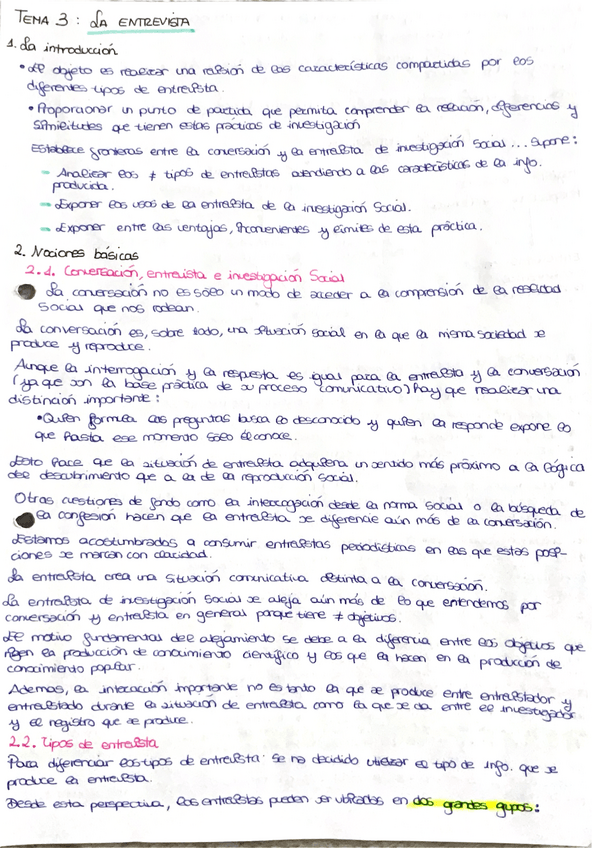 TEMA 3: LA ENTREVISTA
1. La introducción
• El objeto es realizar una revisión de las características compartidas por los
diferentes tipos de entrevista.
• Proporcionar un punto de partida que permita comprender la relación, diferencias y
similitudes que tienen estas prácticas de investigación
Establece fronteras entre la conversación y la entrevista de investigación social... Supone:
- Analizar los ≠ tipos de entrevistas atendiendo a las características de la info.
producida.
- Exponer los usos de la entrevista de la investigación Social.
- Exponer entre las ventajas, inconvenientes y límites de esta práctica.
2. Nociones básicas
2.1. Conversación, entrevista e investigación Social
La conversación no es sólo un modo de acceder a la comprensión de la realidad
Social que nos rodean.
La conversación es, sobre todo, una situación social en la que la misma sociedad se
produce y reproduce.
Aunque la interrogación y la respuesta es igual para la entrevista y la conversación
(ya que son la base práctica de su proceso comunicativo) hay que realizar una
distinción importante:
• Quien formula las preguntas busca lo desconocido y quien la responde expone lo
que hasta ese momento sólo él conoce.
Esto hace que la situación de entrevista adquiera un sentido más próximo a la lógica
del descubrimiento que a la de la reproducción social.
Otras cuestiones de fondo como la interrogación desde la norma social o la búsqueda de
la confesión hacen que la entrevista se diferencie aún más de la conversación.
Estamos acostumbrados a consumir entrevistas periodísticas en las que estas posi-
ciones se marcan con claridad.
La entrevista crea una situación comunicativa distinta a la conversación.
La entrevista de investigación Social se aleja aún más de lo que entendemos por
conversación y entrevista en general porque tiene ≠ objetivos.
El motivo fundamental del alejamiento se debe a la diferencia entre los objetivos que
rigen la producción de conocimiento científico y los que la hacen en la producción de
conocimiento popular.
Además, la interacción importante no es tanto la que se produce entre entrevistador y
entrevistado durante la situación de entrevista como la que se da entre el investigador
y el registro que se produce.
2.2. Tipos de entrevista
Para diferenciar los tipos de entrevista se ha decidido utilizar el tipo de info. que se
produce la entrevista.
Desde esta perspectiva, las entrevistas pueden ser ubicadas en dos grandes grupos: